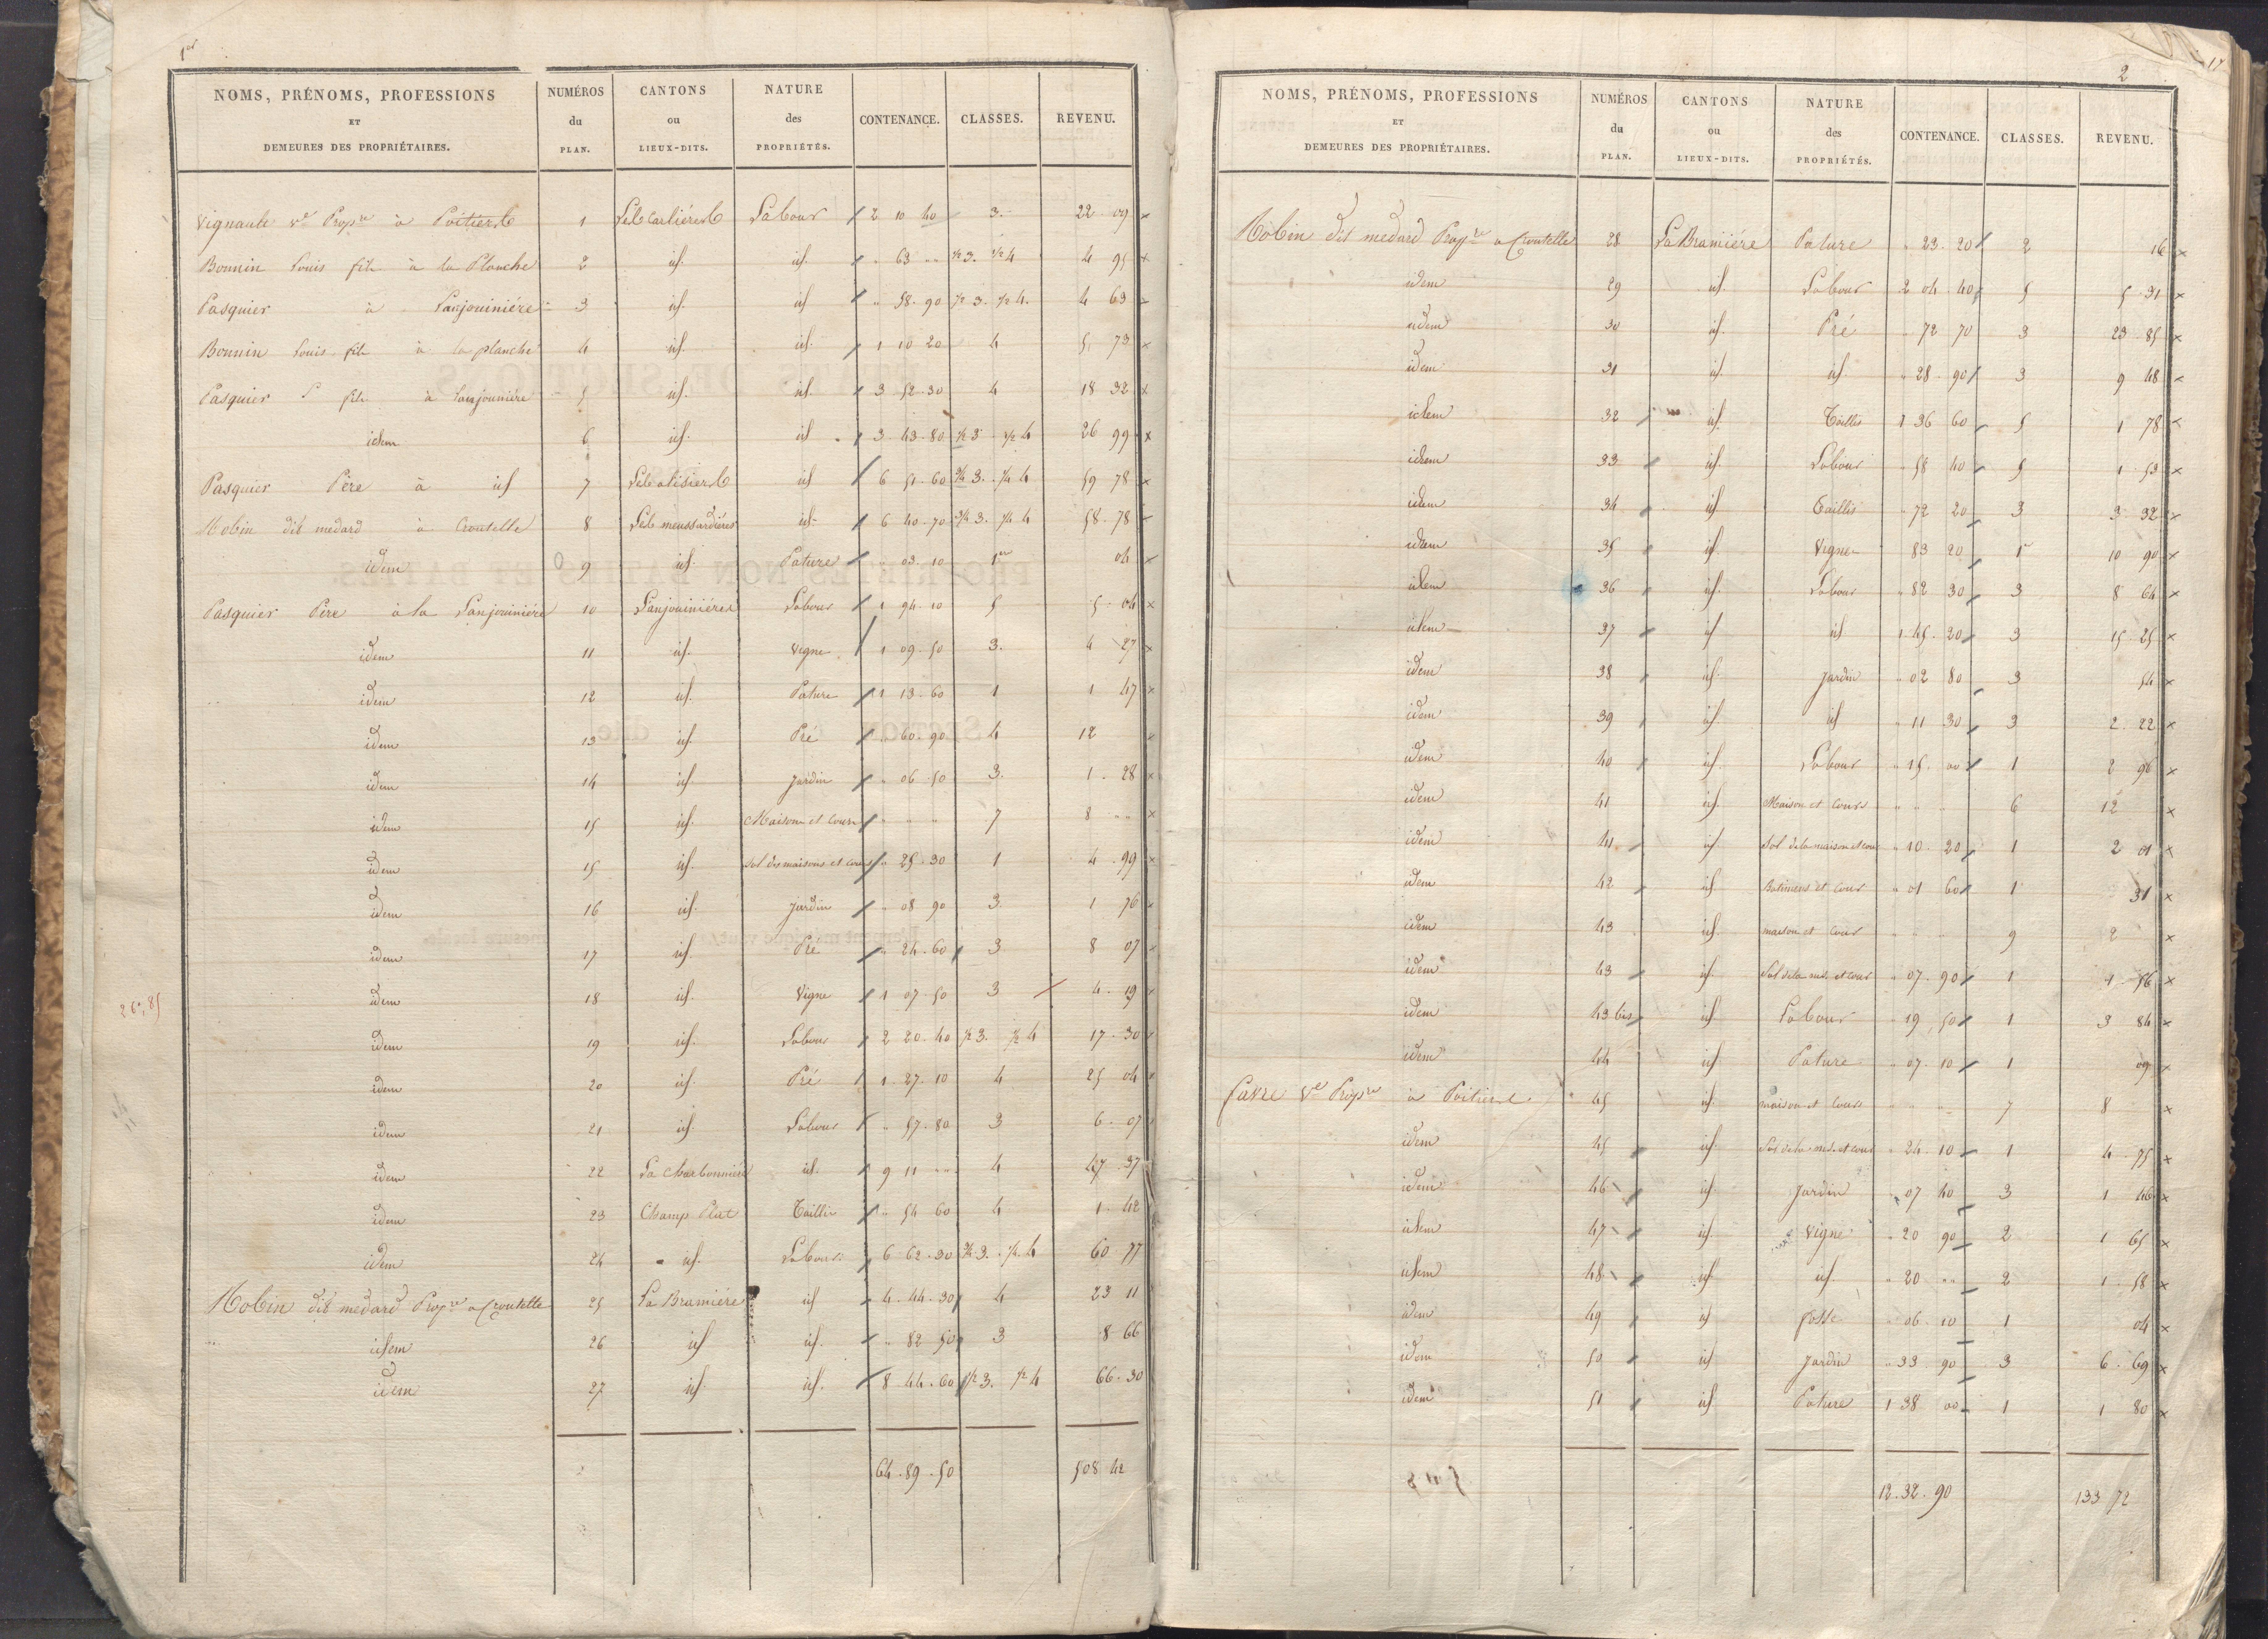 1er
NOMS, PRÉNOMS, PROFESSIONS ET DEMEURES DES PROPRIÉTAIRES. NUMÉROS du PLAN. CANTONS ou LIEUX-DITS. NATURE des PROPRIÉTÉS. CONTENANCE. CLASSES. REVENU.
Vignaute Ve Propre à Poitiers 1 Les Carlières Labour 2 10 40 3. 22 09 x
Bonnin Louis fils à la Planche 2 id. id. " 63 " 1/2 3. 1/2 4 4 95 x
Pasquier à Lanjouinière 3 id. id " 58. 90 1/2 3. 1/2 4. 4 63 x
Bonnin Louis fils à la planche 4 id. id. 1 10 20 4 5 73 x
Pasquier fils à Lanjouinière 5 id. id. 3 52. 30 4 18 32 x
idem 6 id. id 3 43. 80 1/2 3 1/2 4 26 99 x
Pasquier Père à id 7 Les alisiers id 6 51. 60 3/4 3. 1/4 4 59 78 x
Robin dit medard à Croutelle 8 Les meussardières id. 6 40. 70 3/4 3. 1/4 4 58. 78 x
idem 9 id. Pature " 03. 10 1er 04 x
Pasquier Père à la Lanjouinière 10 Lanjouinière Labour 1 94. 10 5 5 04 x
idem 11 id. Vigne 1 09. 50 3. 4 27 x
idem 12 id. Pature 1 13. 60 1 1 47 x
idem 13 id. Pré " 60. 90 4 12 x
idem 14 id Jardin " 06. 50 3. 1. 28 x
idem 15 id. Maison et Cour " " " 7 8 " x
idem 15 id. Sol des maisons et cours " 25. 30 1 4. 99 x
idem 16 id. Jardin " 08 90 3 1 76 x
idem 17 id. Pré " 24. 60 3 8 07 x
26,,85
idem 18 id. Vigne 1 07. 50 3 4. 19 x
idem 19 id. Labour 2 20. 40 1/2 3. 1/2 4 17. 30 x
idem 20 id. Pré 1. 27. 10 4 25 04 x
idem 21 id. Labour " 57. 80 3 6. 07
idem 22 La Charbonnière id. 9 11 " 4 47. 37
idem 23 Champ Plat Taillis " 54 60 4 1. 42
idem 24 id. Labour 6 62. 30 3/4 3. 1/4 4 60 77
Robin dit medard Propre a Croutelle 25 La Bramière id 4. 44. 30 4 23 11
idem 26 id id. " 82 50 3 8 66
idem 27 id. id. 8. 44. 60 1/2 3. 1/2 4 66. 30
64. 89. 50 508 42
2
17
NOMS, PRÉNOMS, PROFESSIONS ET DEMEURES DES PROPRIÉTAIRES. NUMÉROS du PLAN. CANTONS ou LIEUX-DITS. NATURE des PROPRIÉTÉS. CONTENANCE. CLASSES. REVENU.
Robin dit medard Propre a Croutelle 28 La Bramière Pature " 23. 20 2 16 x
idem 29 id. Labour 2 04. 40 5 5. 31 x
idem 30 id. Pré " 72 70 3 23. 85 x
idem 31 id id " 28. 90 3 9 48 x
idem 32 id. Taillis 1 36 60 5 1 78 x
idem 33 id. Labour " 58 40 5 1. 53 x
idem 34 id Taillis " 72 20 3 3. 32 x
idem 35 id. Vigne " 83 20 1er 10 90 x
idem 36 id. Labour " 82 30 3 8 64 x
idem 37 id id 1 45. 20 3 15. 25 x
idem 38 id. Jardin " 02 80 3 54 x
idem 39 id. id " 11 30 3 2. 22 x
idem 40 id. Labour " 15. 00 1 2 96 x
idem 41 id. Maison et Cour " " " 6 12 x
idem 41 id. Sol de la maison et cour " 10. 20 1 2 01 x
idem 42 id. Batimens et Cour " 01 60 1 31 x
idem 43 id. maison et Cour " " " 9 2 x
idem 43 id. Sol de la mon. et cour " 07. 90 1 1. 56 x
idem 43 bis id Labour " 19. 50 1 3 84 x
idem 44 id Pature " 07. 10 1 09 x
Favre Ve Propre à Poitiers 45 id. maison et Cour " " " 7 8 x
idem 45 id. Sol de la mon. et cour " 24. 10 1 4. 75 x
idem 46 id Jardin " 07 40 3 1 46 x
idem 47 id. Vigne " 20 90 2 1 65 x
idem 48 id id. " 20 " 2 1. 58 x
idem 49 id fosse " 06. 10 1 04 x
idem 50 id Jardin " 33 90 3 6. 69 x
idem 51 id Pature 1 38 00 1 1 80 x
12. 32. 90 133 72